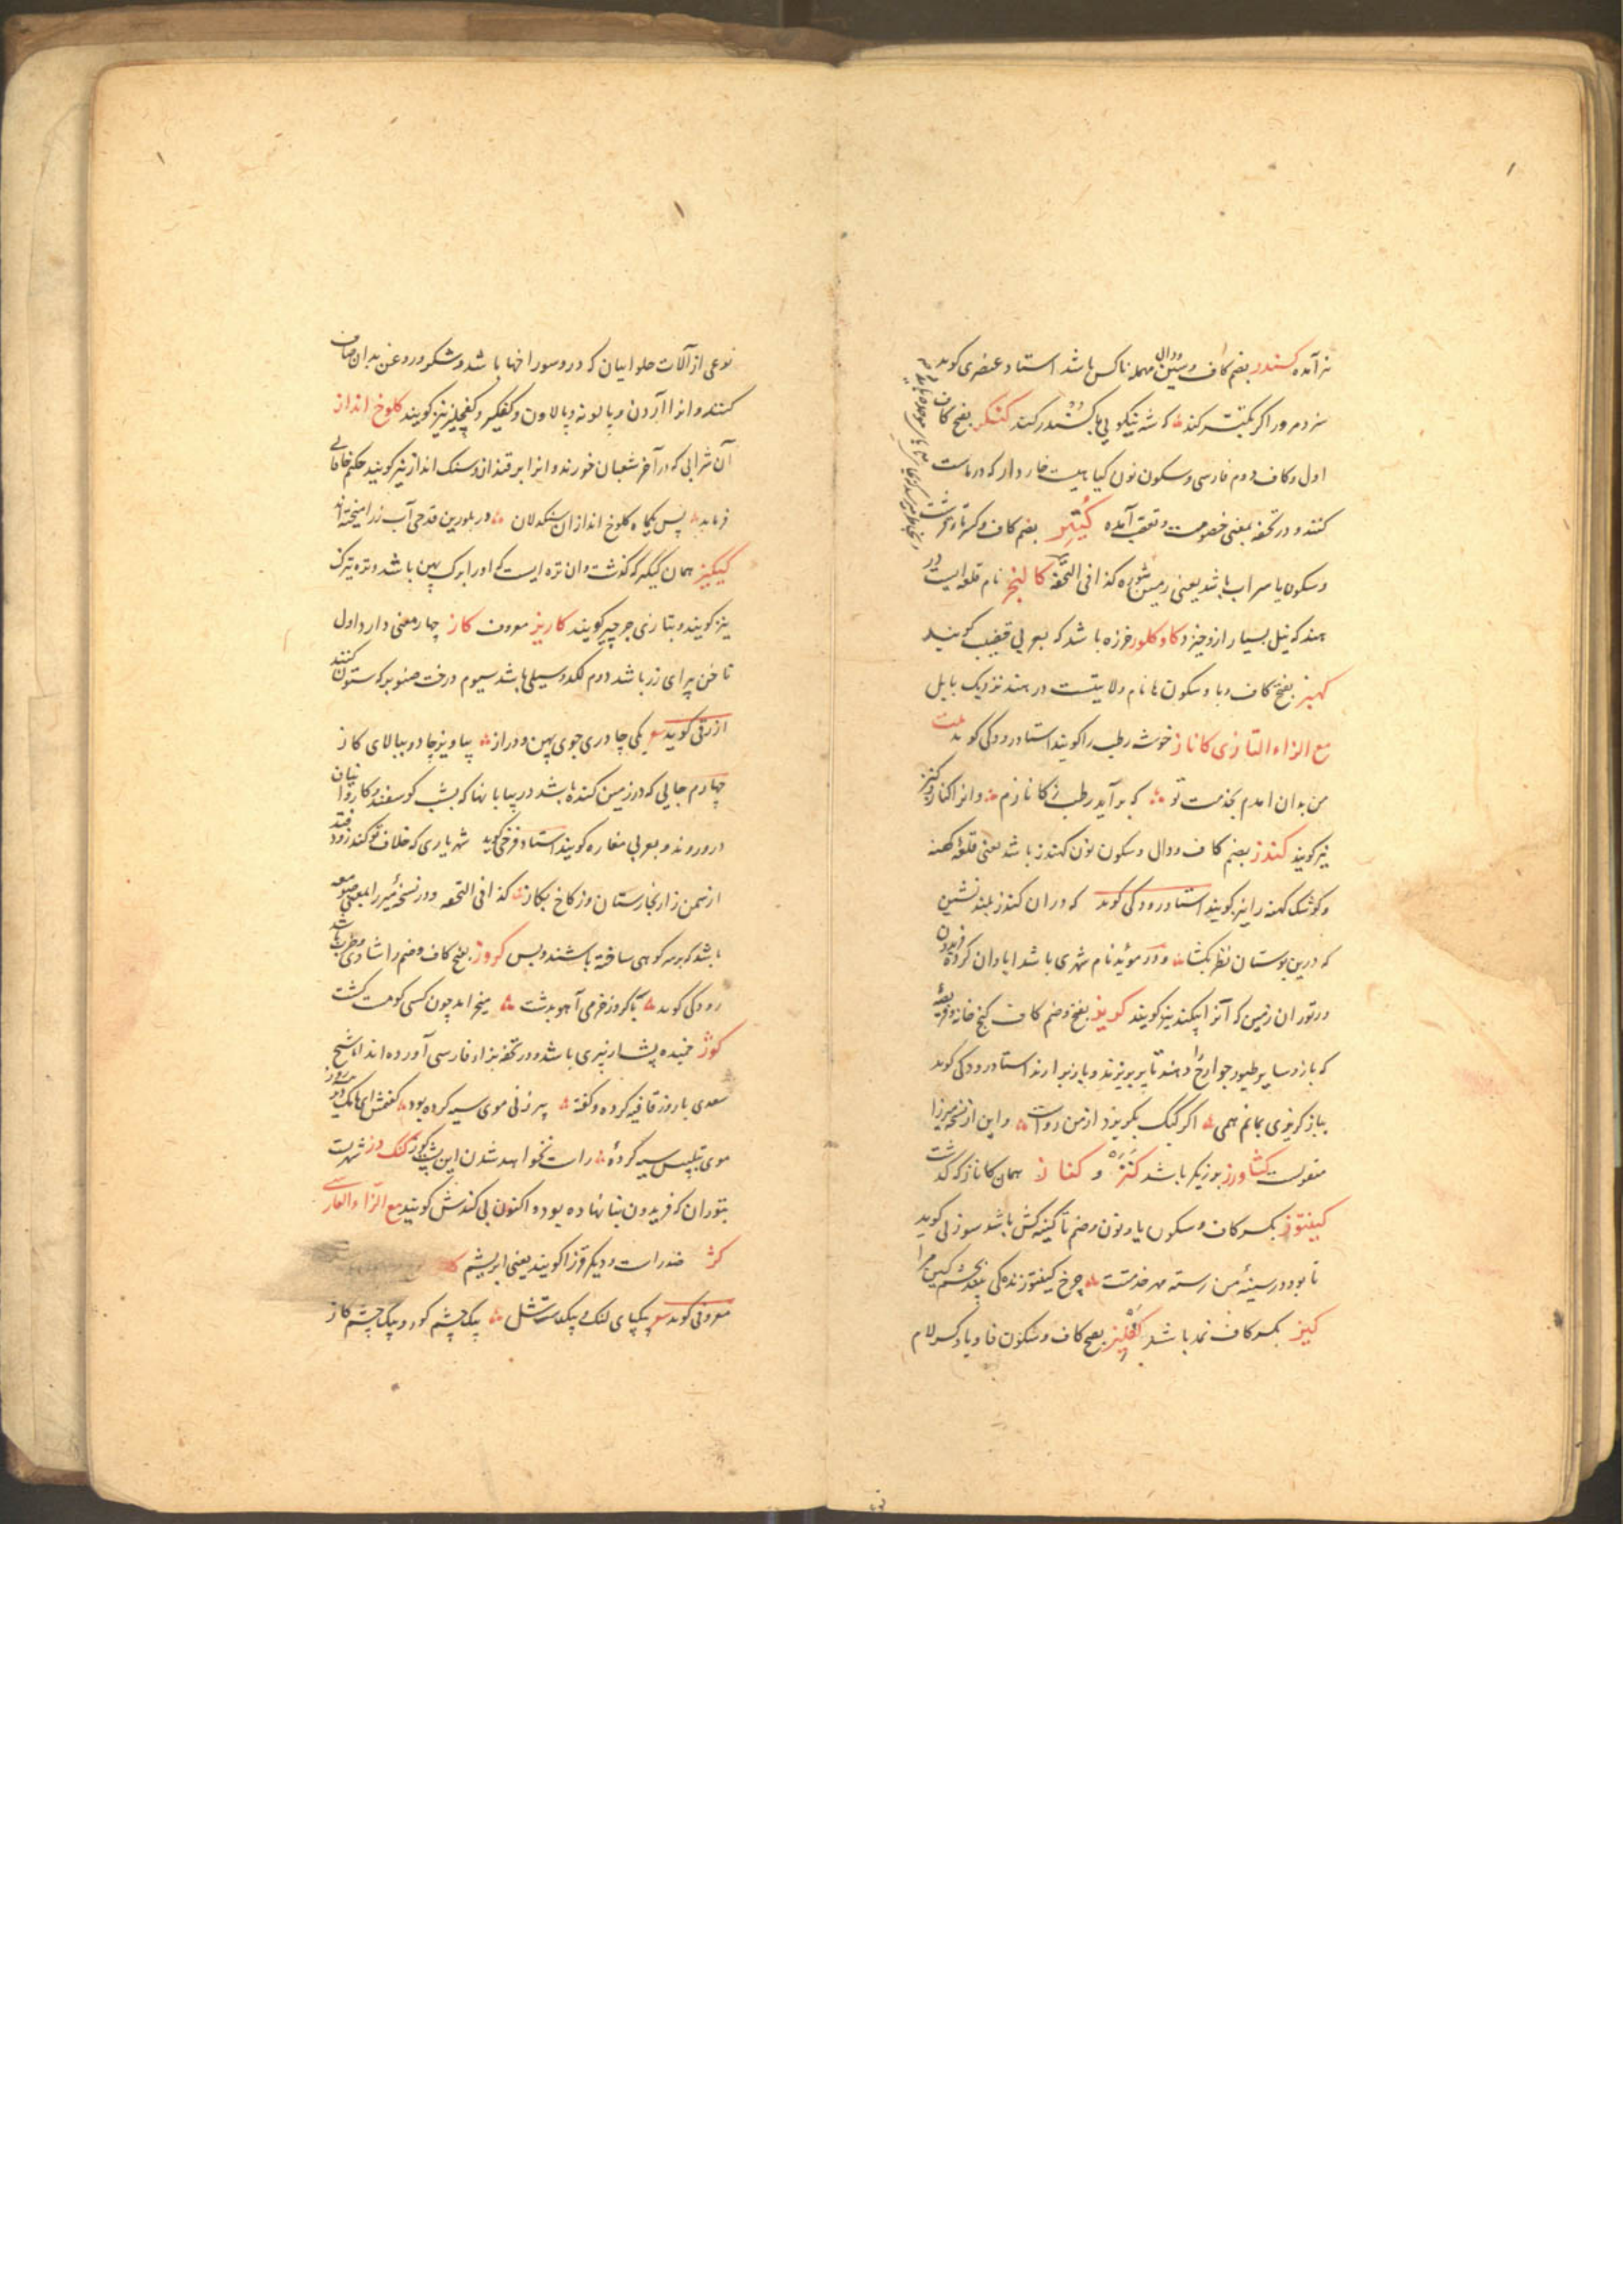 نیز آمده کسندر بضم کاف و سین و دال مهمله ناکس باشد استاد عنصری کوید
سزد مرورا کر بکیتی کند که شه نیکویی با کسندر کند کنکر بفتح کاف
اول و کاف دوم فارسی و سکون نون کیاهیست خاردار که در ماست
کنند و در تحفه بمعنی خصومت و تعصب آمده کتیر بضم کاف و کسر تاء قرشت
و سکون یا سراب باشد یعنی زمین شوره کذا فی التحفة کالنجر نام قلعه ایست در
هند که نیل بسیار ازو خیزد کاوکلور خرزه باشد که بعربی قضیب کویند
کهبز بفتح کاف و با و سکون ها نام ولایتست در هند نزدیک بابل
مع الزاء التازی کاناز خوشه رطب را کویند استاد رودکی کوید بیت
من بدان امدم بخدمت تو که برآید رطب ز کانازم و انرا کناز و کنز
نیز کویند کندز بضم کاف و دال و سکون نون کهندز باشد یعنی قلعه کهنه
و کوشک کهنه را نیز کویند استاد رودکی کوید که دران کندز بلند نشین
که درین بوستان نظر بکشا و در موید نام شهری باشد ابادان کرده فریدون
در توران زمین که آنرا بیکند نیز کویند کریز بفتح و ضم کاف کنج خانه و قریه
که باز و سایر طیور جوارح را دهند تا پر بریزند و باز برارند استاد رودکی کوید
بباز کریزی بمانم همی اکر کبک بکریزد از من رواست و این از نسخه میرزا
منقولست کشاورز برزیکر باشد کنز و کناز همان کاناز که کذشت
کینتوز بکسر کاف و سکون یا و نون و ضم تا کینه کش باشد سوزنی کوید
تا بود در سینه من رسته مهر خدمتت چرخ کینتوز زندکی بخشم کین مرا
کیز بکسر کاف نمد باشد کفلیز بفتح کاف و سکون فا و یا و کسر لام
نوعی از آلات حلوائیان که درو سوراخها باشد و شکر و روغن بدان صاف
کنند و انرا آردن و پالونه و پالاون و کفکیر و کفچلیز نیز کویند کلوخ انداز
آن شرابی که در آخر شعبان خورند و انرا برقندان و سنک انداز نیز کویند حکیم خاقانی
فرماید پس یکماه کلوخ اندازان سنکدلان در بلورین قدحی آب زر امیخته اند
کیکیز همان کیکر که کذشت و ان تره ایست که اورا برک پهن باشد و تره تیزک
نیز کویند و بتازی جرجیر کویند کاریز معروف کاز چهار معنی دارد اول
ناخن پیرای زر باشد دوم لکد و سیلی باشد سیوم درخت صنوبر که ستون کنند
ازرقی کوید یکی چادری جوی پهن و دراز بیاویز چادر ببالای کاز
چهارم جایی که در زمین کنده باشد در بیابانها که بشب کوسفند و کاروانیان
درو روند و بعربی مغاره کویند استاد فرخی کوید شهریاری که خلاف تو کند زود فتد
از سمن زار بخارستان وز کاخ بکاز کذا فی التحفه و در نسخه میرزا بمعنی صومعه
باشد که بر سر کوهی ساخته باشند و بس کروز بفتح کاف و ضم را شادی و طرب باشد
رودکی کوید با کروز خرمی آهو بدشت میخرامد چون کسی کو مست کشت
کوز خمیده پشت از پیری باشد و در تحفه بزاء فارسی آورده اند اما شیخ
سعدی با روز قافیه کرده و کفته پیرزنی موی سیه کرده بود کفتمش ای مامک دیرینه روز
موی بتلبیس سیه کرده راست نخواهد شدن این پشت کوز کنک دز شهریست
بتوران که فریدون بنا نهاده بوده اکنون بی کندش کویند مع الزاء الفارسی
کژ ضد راست و دیکر قز را کویند یعنی ابریشم
معروفی کوید یکپای لنک و یک دست شل یک چشم کور و یک چشم کاز